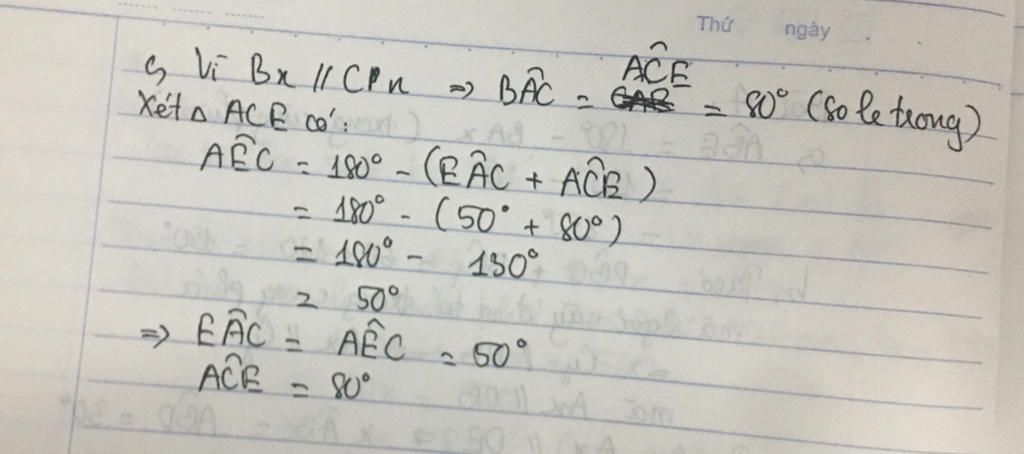 Thứ ngày
c, Vì Bx // CPn => BÂC = ACÊ = 80° (so le trong)
Xét Δ ACE có:
AÊC = 180° - (EÂC + AĈE)
= 180° - (50° + 80°)
= 180° - 130°
= 50°
=> EÂC = AÊC = 50°
AĈE = 80°